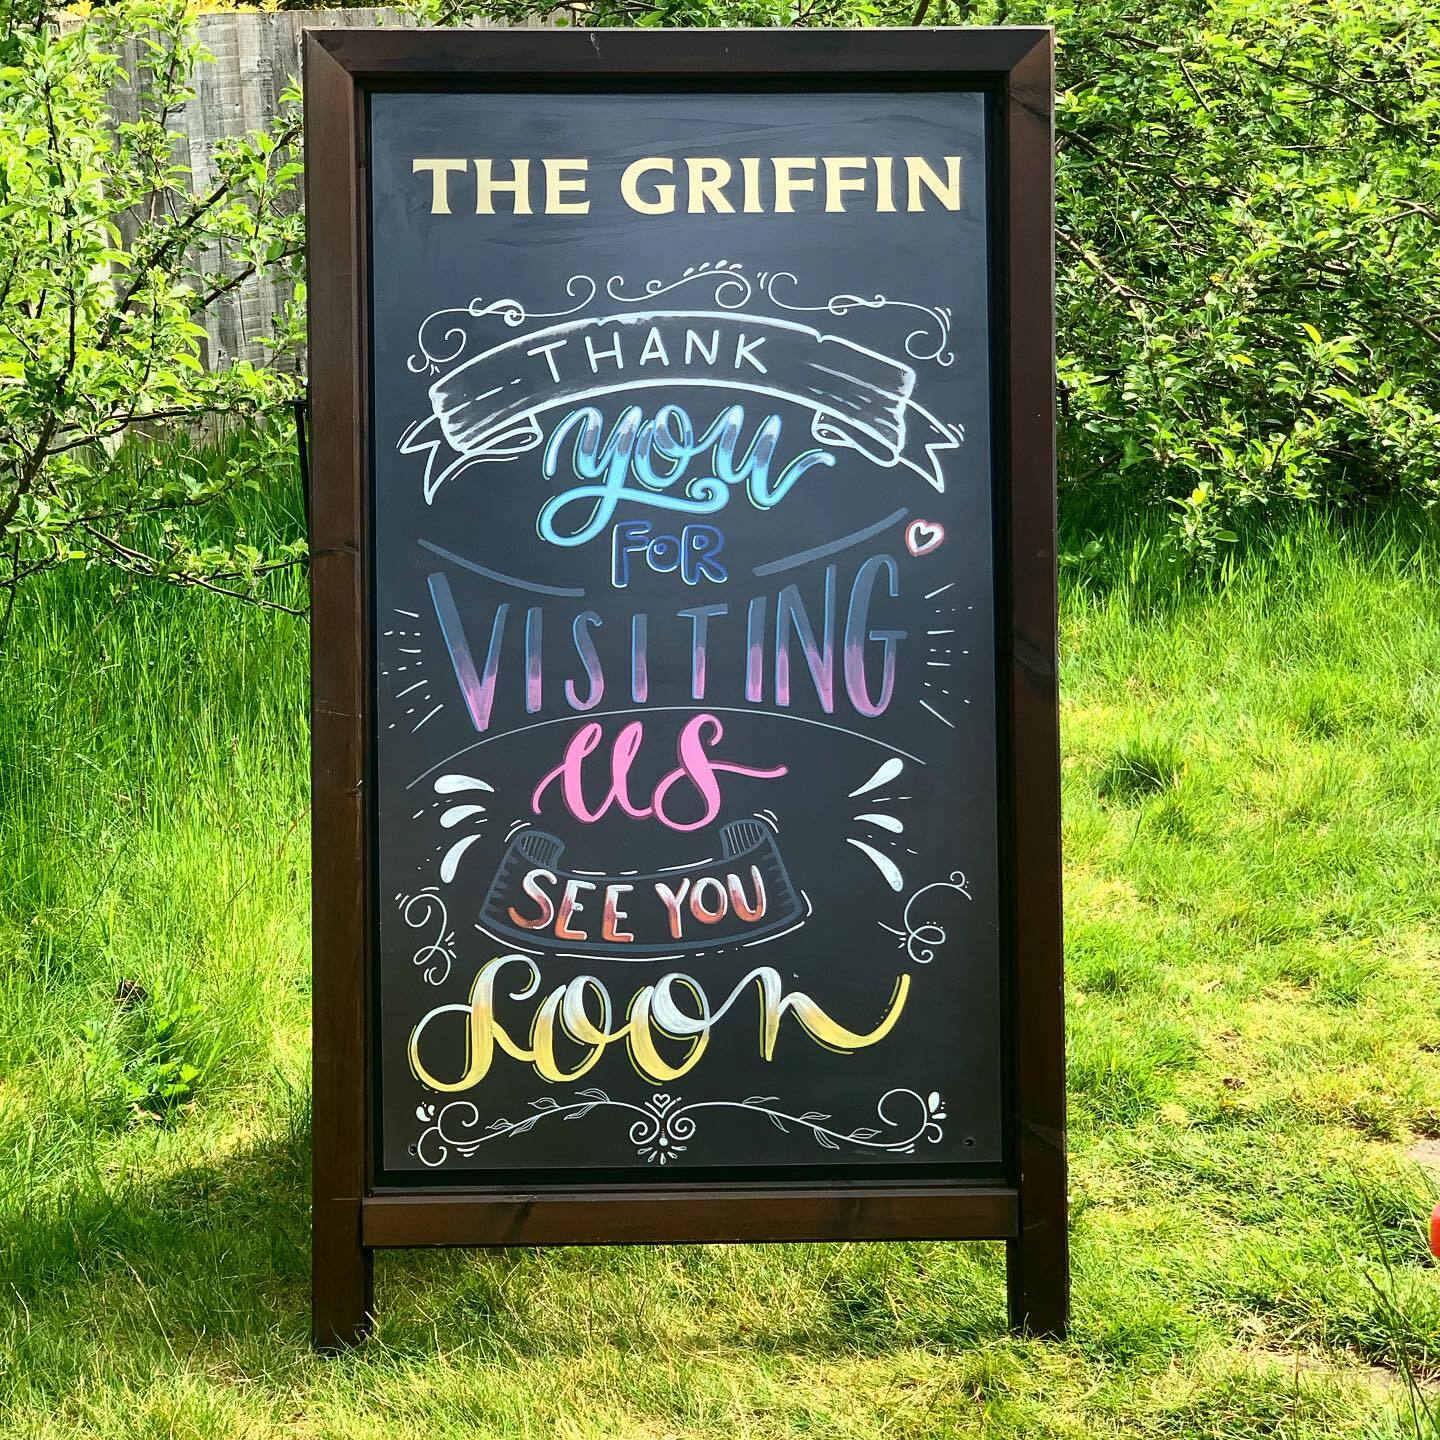 THE GRIFFIN
THANK
you
FOR
VISITING
us
SEE YOU
Soon